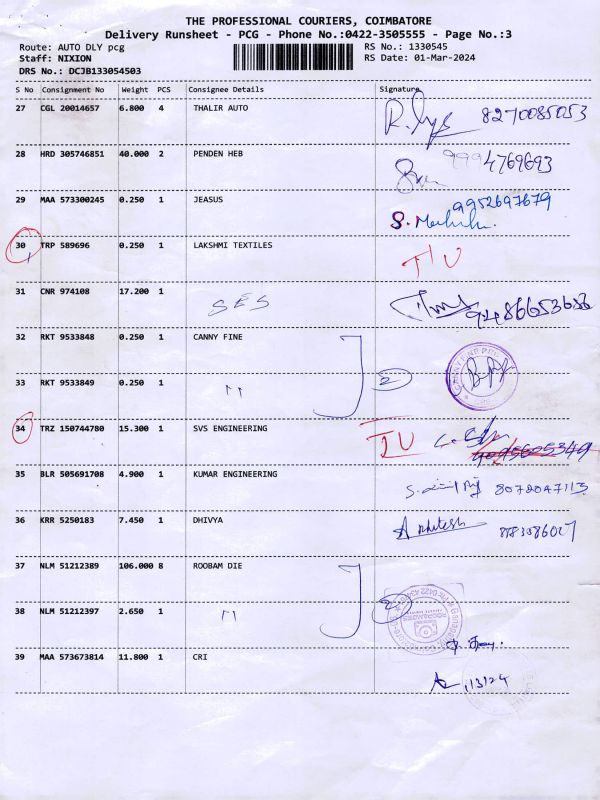 THE PROFESSIONAL COURIERS, COIMBATORE
Delivery Runsheet - PCG - Phone No.:0422-3505555 - Page No.:3
Route: AUTO DLY pcg RS No.: 1330545
Staff: NIXION RS Date: 01-Mar-2024
DRS No.: DCJB133054503
S No Consignment No Weight PCS Consignee Details Signature
27 CGL 20014657 6.800 4 THALIR AUTO 8270085053
28 HRD 305746851 40.000 2 PENDEN HEB 9994769693
29 MAA 573300245 0.250 1 JEASUS 9952697679
30 TRP 589696 0.250 1 LAKSHMI TEXTILES
31 CNR 974108 17.200 1 SES 9486653686
32 RKT 9533848 0.250 1 CANNY FINE
33 RKT 9533849 0.250 1 " 2
34 TRZ 150744780 15.300 1 SVS ENGINEERING
35 BLR 505691708 4.900 1 KUMAR ENGINEERING 8072047113
36 KRR 5250183 7.450 1 DHIVYA
37 NLM 51212389 106.000 8 ROOBAM DIE
38 NLM 51212397 2.650 1 " 2
39 MAA 573673814 11.800 1 CRI 1/3/24